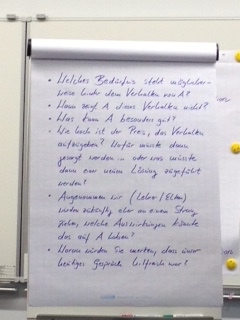 • Welches Bedürfnis steht möglicher-
weise hinter dem Verhalten von A?
• Wann zeigt A dieses Verhalten nicht?
• Was kann A besonders gut?
• Wie hoch ist der Preis, das Verhalten
aufzugeben? Wofür müsste dann
gesorgt werden ... oder was müsste
dann einer neuen Lösung zugeführt
werden?
• Angenommen wir (Lehrer/Eltern)
würden zukünftig eher an einem Strang
ziehen, welche Auswirkungen könnte
das auf A haben?
• Woran würden Sie merken, dass unser
heutiges Gespräch hilfreich war?